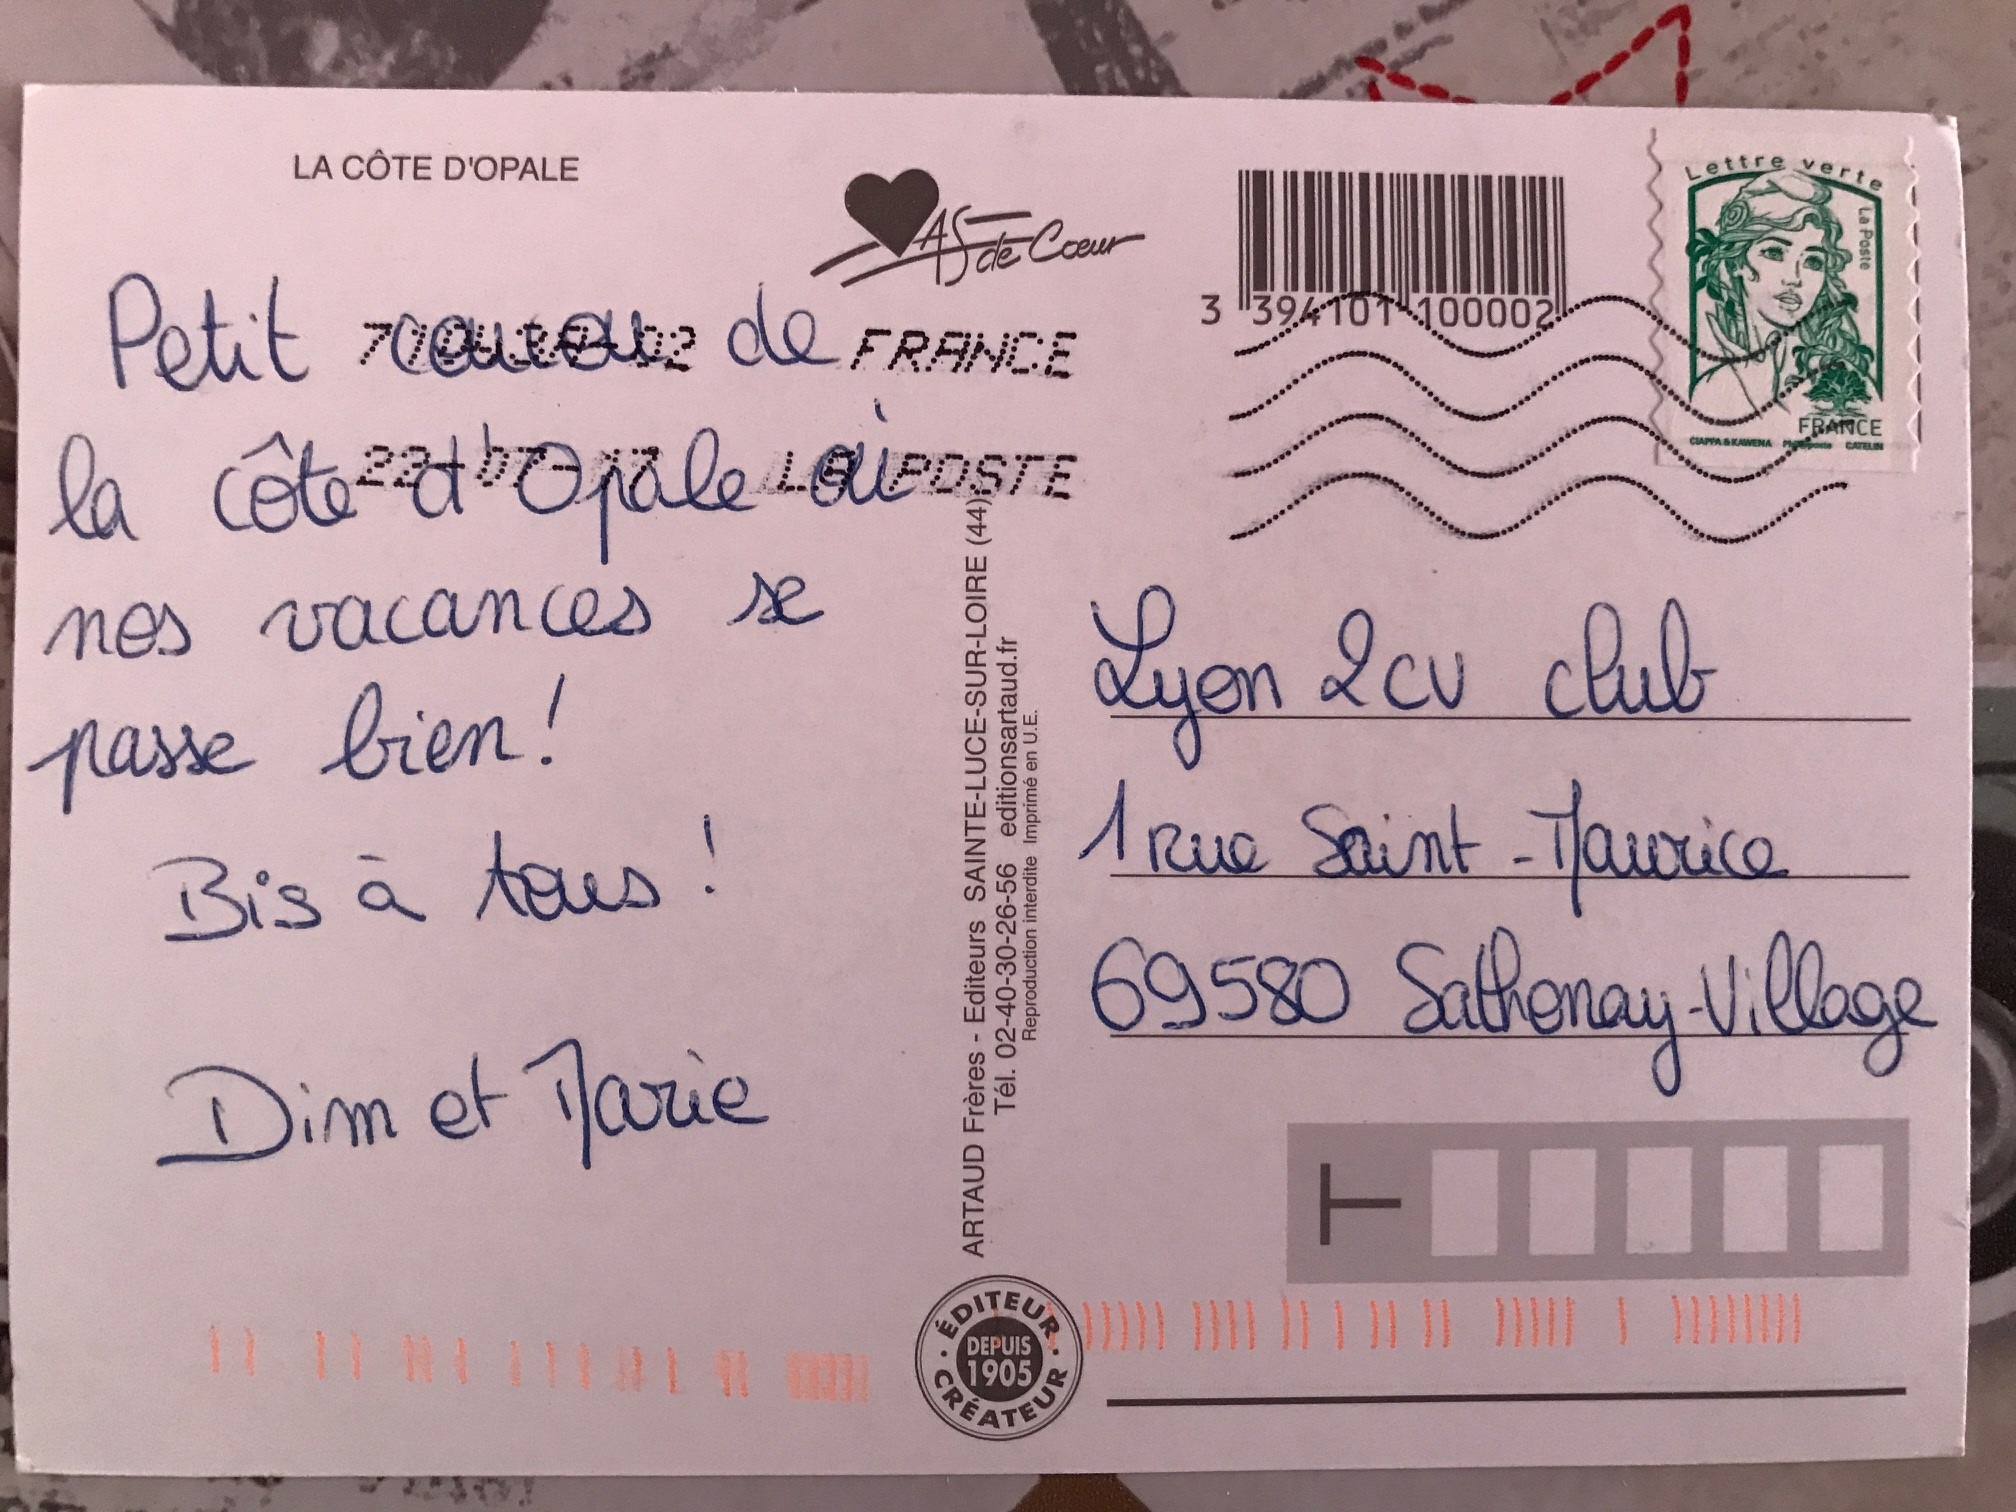 LA CÔTE D'OPALE
AS de Cœur
3 394101 100002
Lettre verte
La Poste
FRANCE
CIAPPA & KAWENA Phil@poste CATELIN
FRANCE
22-07-17 LA POSTE
Petit coucou de
la côte d'Opale où
nos vacances se
passe bien!
Bis à tous!
Dim et Marie
ARTAUD Frères - Editeurs SAINTE-LUCE-SUR-LOIRE (44)
Tél. 02-40-30-26-56 editionsartaud.fr
Reproduction interdite Imprimé en U.E.
Lyon 2CV club
1 rue Saint-Maurice
69580 Sathonay-Village
T
ÉDITEUR
DEPUIS
1905
CRÉATEUR